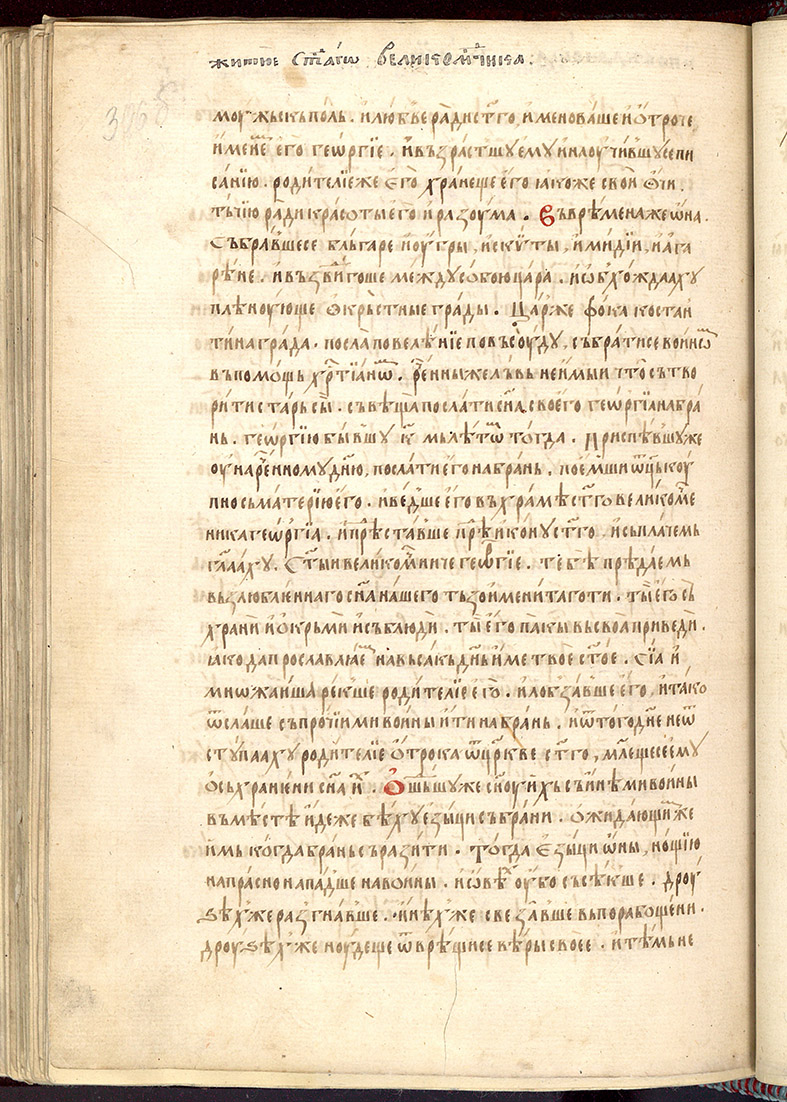 житїе ст҃агѡ великомч҃ника.
306
моужьскь поль. и любве ради ст҃го, именоваше и отроче
именѐ его геѡргїе. и възрастшу ему и илоучившусе пи
санїю. родителїе же его хранеше его ꙗкоже свои очи.
тьчїю ради красоты его и разоума. Въ врѣмена же ѡна.
събравшесе бльгаре и оугры, и скѵты, и миди, и ага
рѣне. и въздвигоше междусобою цара. и ѡбхождааху
плѣноующе окрьстные грады. Царже фока костан
тина града. посла повелѣнїе по въсоуду, събратисе воинѡ
въ помощь хр҃тїанѡ. реⷱнныже львь не имыи что сътво
рити старь сы. съвѣща послати сн҃а своего геѡргїа на бра
нь. геѡргїю бывшу к҃ мь лѣтѡ тогда. Приспѣвшу же
оу нареⷱнному дн҃ю, послати его на брань. поемши ѡц҃ь коу
пно съ матерїю его. и ведше его въ храмь ст҃го великомⷱе
ника геѡргїа. и прѣставше прѣⷣ иконꙋ ст҃го, и съ плачемь
гл҃ааху. Ст҃ыи великомⷱниче геѡргїе. тебѣ прѣдаемь
възлюбленнаго сн҃а нашего тьзоименитаго ти. ты его съ
храни и окрьми и съблюди. ты его пакы въ своа приведи.
ꙗко да прославлꙗе на въсакь дн҃ь име твое ст҃ое. Сїа и
мнѡжаиша рекше родителїе его. и лобзавше его, и тако
ѿслаше съ прочїими воины ити на брань. и ѿ того дн҃е не ѿ
ступааху родителїе отрока ѿ цр҃кве ст҃го, млещесе ему
о съхранени сн҃а и҃. Ошьшу же сн҃оу ихь съ инѣми воины
въ мѣстѣ идеже бѣху езыци събрани. ожидающи же
имь когда брань съразити. тогда езыци ѡны, нощїю
напрасно нападше на воины. и ѡвѣ оубо съсѣкше. дроу
зѣх же разгнавше. инѣх же свезавше въ порабощени.
дроузѣх же ноудеще ѿврѣщисе вѣры своее. и тѣмь не